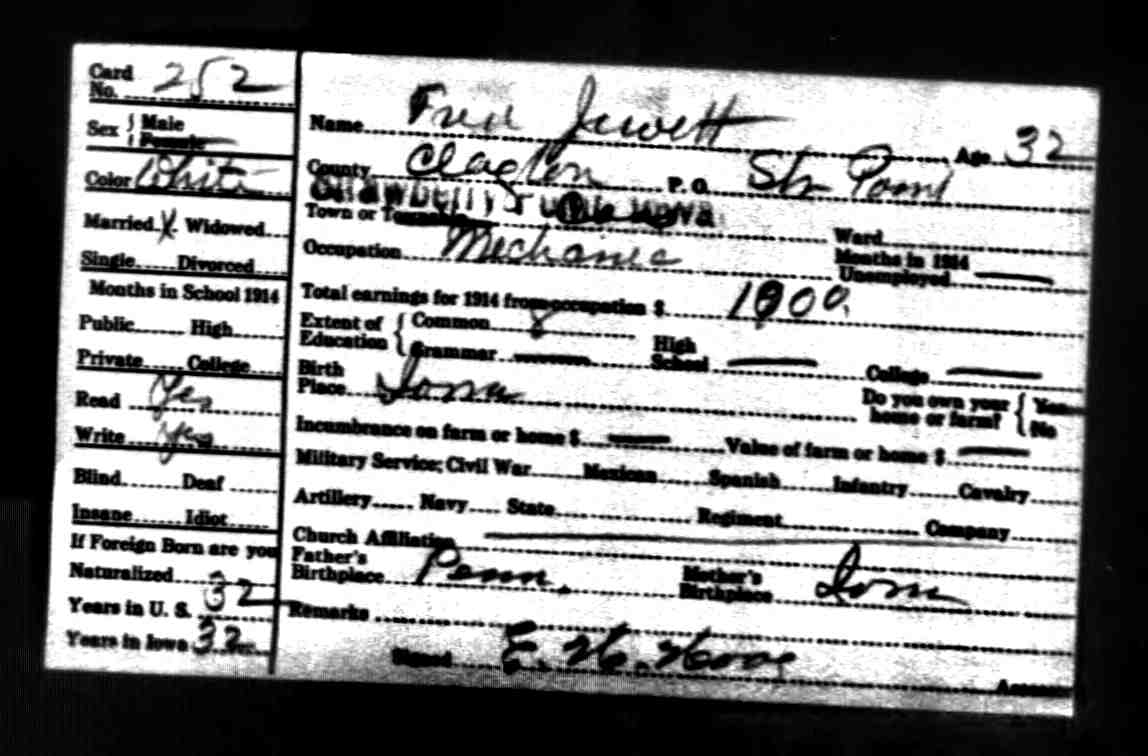 Card No. 252
Sex Male Female
Color White
Married X Widowed
Single Divorced
Months in School 1914
Public High
Private College
Read Yes
Write Yes
Blind Deaf
Insane Idiot
If Foreign Born are you
Naturalized
Years in U. S. 32
Years in Iowa 32
Name Fred Jewett Age 32
County Clayton P. O. Str Point
Town or Township Strawberry Point, Iowa
Ward
Occupation Mechanic Months in 1914 Unemployed —
Total earnings for 1914 from occupation $ 1000.
Extent of Education Common 8 Grammar — High School — College —
Birth Place Iowa Do you own your home or farm? Yes No
Incumbrance on farm or home $ — Value of farm or home $ —
Military Service; Civil War Mexican Spanish Infantry Cavalry
Artillery Navy State Regiment Company
Church Affiliation —
Father's Birthplace Penn. Mother's Birthplace Iowa
Remarks
Signed E. H.